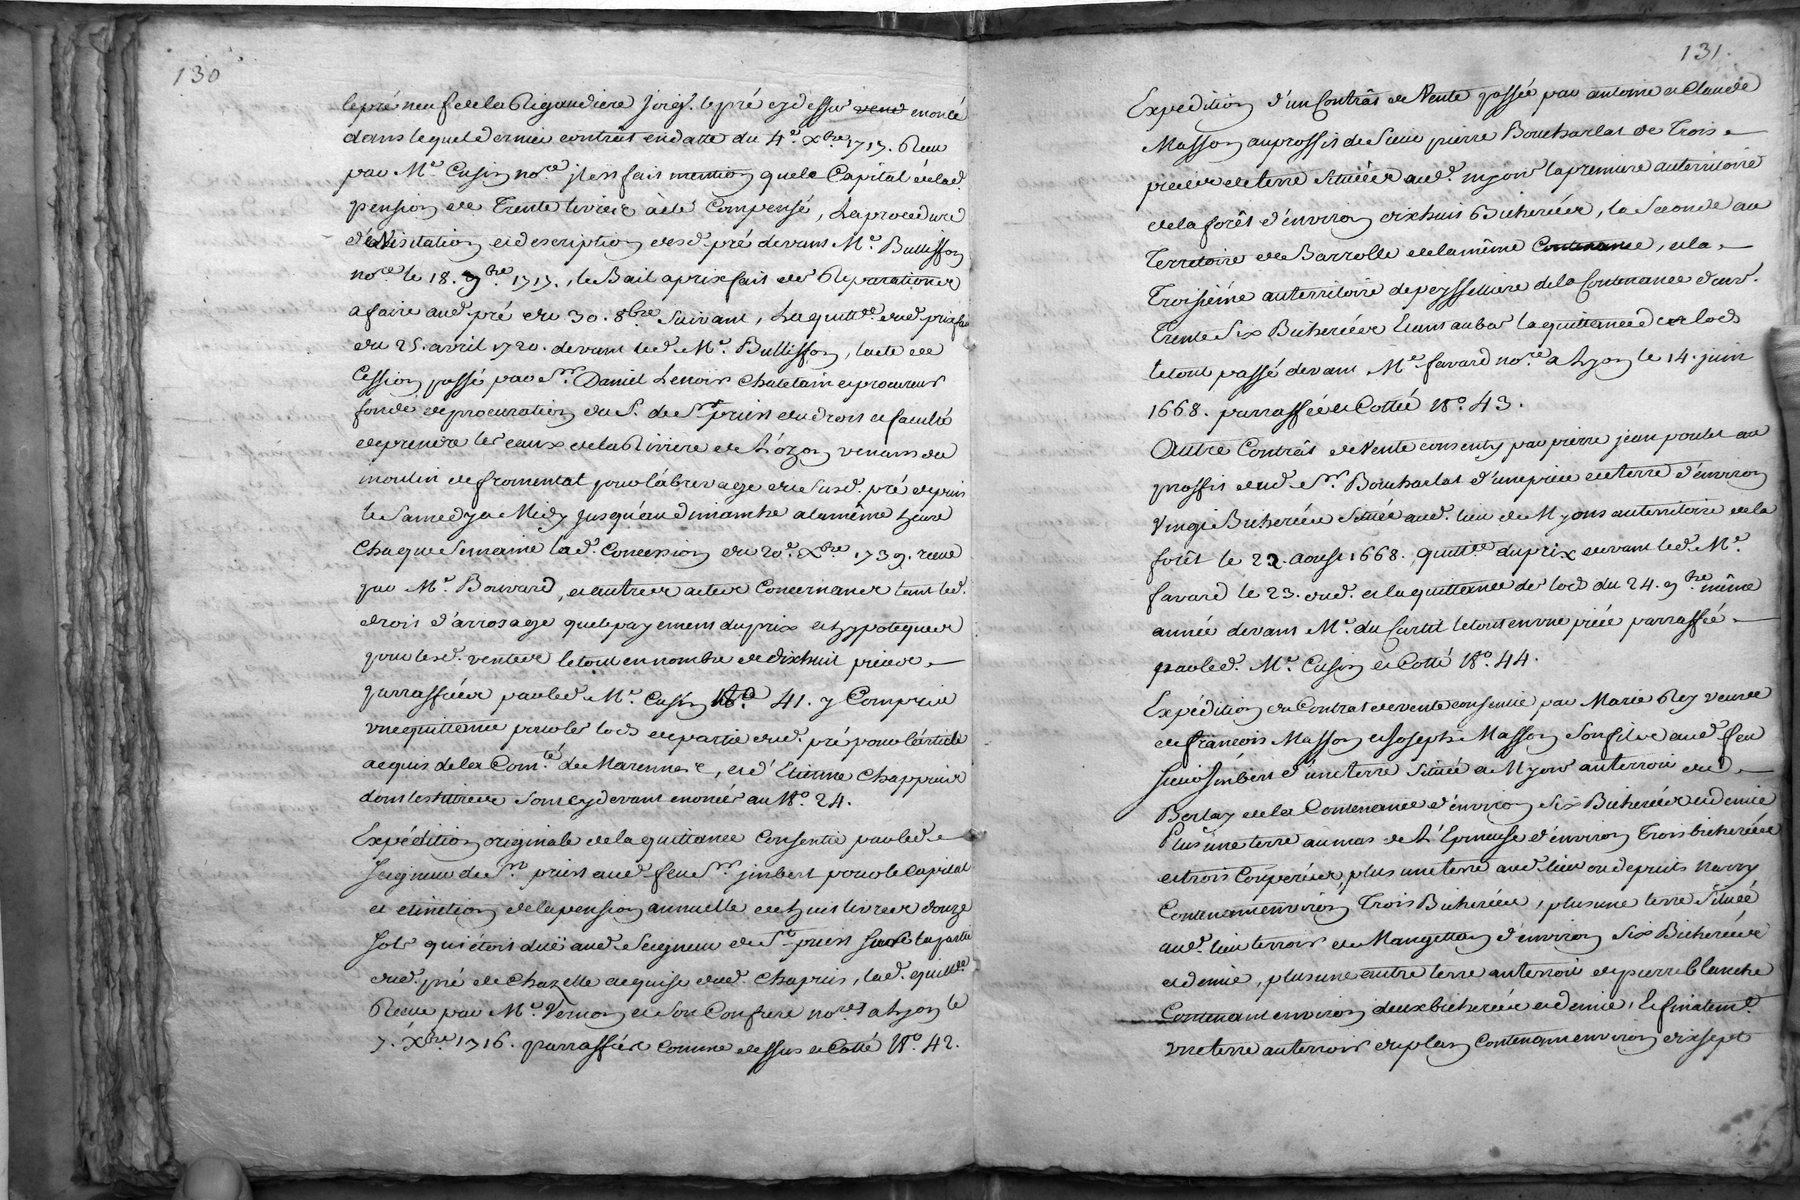 130
le pré neuf de la Rigaudiere joig.t le pré cy dessus vend enoncé
dans lequel dernier contrât en datte du 4.e Xbre 1717. Reçu
par M.e Cusin no.re il est fait mention que le Capital de lad.
pension de Trente livres à été Compensé, La procedure
de Visitation et description dud. pré devant M.e Bullisson
no.re le 18. 9bre 1717., le Bail a prix fait des Reparations
a faire aud. pré du 30. 8bre Suivant, La quitt.ce dud. prix fait
du 25. avril 1720. devant led. M.e Bullisson, l'acte de
Cession passé par S.r Daniel Lenoir Chatelain et procureur
fondé de procuration du S. de S.t priest du droit et faculté
de prendre les eaux de la Riviere de L'ozon venant du
moulin de fromental pour l'abrevage du susd. pré depuis
le Samedy a Midy jusqu'au dimanche a la même heure
chaque Semaine lad. Concession du 20.e Xbre 1739. reçue
par M.e Bouvard, et autres actes Concernants tant led.
droit d'arrosage que le payement du prix et hypoteques
pour lesd. ventes le tout en nombre de dixhuit pieces
parraffées par led. M.e Cusin N.o 41. y Compris
une quittance pour les lods de partie dud. pré pour l'article
acquis de la Com.té de Marennes, et d'Etienne Chappuis
dont les titres sont cy devant enoncés au N.o 24.
Expédition originale de la quittance Consentie par led.
Seigneur de S.t priest aud. feu S.r jinbert pour le Capital
et extinction de la pension annuelle de huit livres douze
sols qui étoit duë aud. Seigneur de S.t priest sur la partie
dud. pré de Chazelle acquise dud. Chapuis, lad. quitt.ce
Reçue par M.e Vernon et Son Confrere no.res a Lyon le
7. Xbre 1716. parraffée comme dessus et Cotté N.o 42.
131.
Expedition d'un Contrât de Vente passée par antoine et Claude
Masson au proffit de Sieur pierre Boucharlat de Trois
pieces de terre Situées aud. myons la premiere au territoire
de la forêt d'environ dixhuit Bicherées, la Seconde au
Territoire de Barrolle de la même Contenance, et la
Troisième au territoire de peyssilliere de la Contenance d'env.
Trente Six Bicherées Etant au bas la quittance des lods
le tout passé devant M.e favard no.re a Lyon le 14. juin
1668. parraffée et Cottée N.o 43.
Autre Contrât de Vente consenty par pierre jean poulet au
proffit dud. S.r Boucharlat d'une piece de terre d'environ
Vingt Bicherées Située aud. lieu de Myons au territoire de la
forêt le 22. aoust 1668. quitt.ce du prix devant led. M.e
favard le 23. dud. et la quittance de lods du 24. 9bre même
année devant M.e du Curtil le tout en une piéce parraffée
par led. M.e Cusin et Cotté N.o 44.
Expédition du Contrat de vente consentie par Marie Rey veuve
de françois Masson et Joseph Masson Son fils aud. feu
Sieur jinbert d'une terre Située a Myons au terroir du
Berlay de la Contenance d'environ Six Bicherées et demie
Plus une terre au mas de L'Epineuse d'environ Trois bicherées
et trois Couperées, plus une terre aud. lieu ou de puits navry
Contenant environ Trois Bicherées, plus une terre Située
aud. lieu terroir de Mangetton d'environ Six Bicherées
et demie, plus une autre terre au terroir de pierre blanche
Contenant environ deux bicherées et demie, Et finalem.t
une terre au terroir du plan Contenant environ dixsept